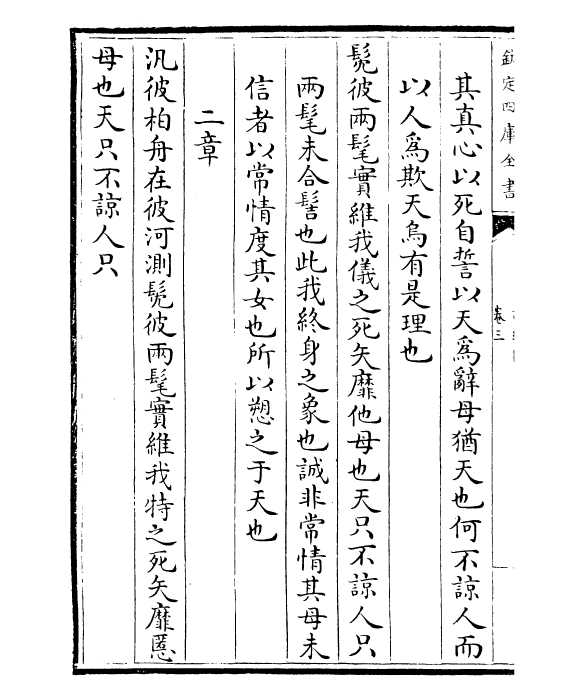 欽定四庫全書
卷三
其真心以死自誓以天爲辭母猶天也何不諒人而
以人爲欺天烏有是理也
髧彼兩髦實維我儀之死矢靡他母也天只不諒人只
兩髦未合髻也此我終身之象也誠非常情其母未
信者以常情度其女也所以愬之于天也
二章
汎彼柏舟在彼河測髧彼兩髦實維我特之死矢靡慝
母也天只不諒人只